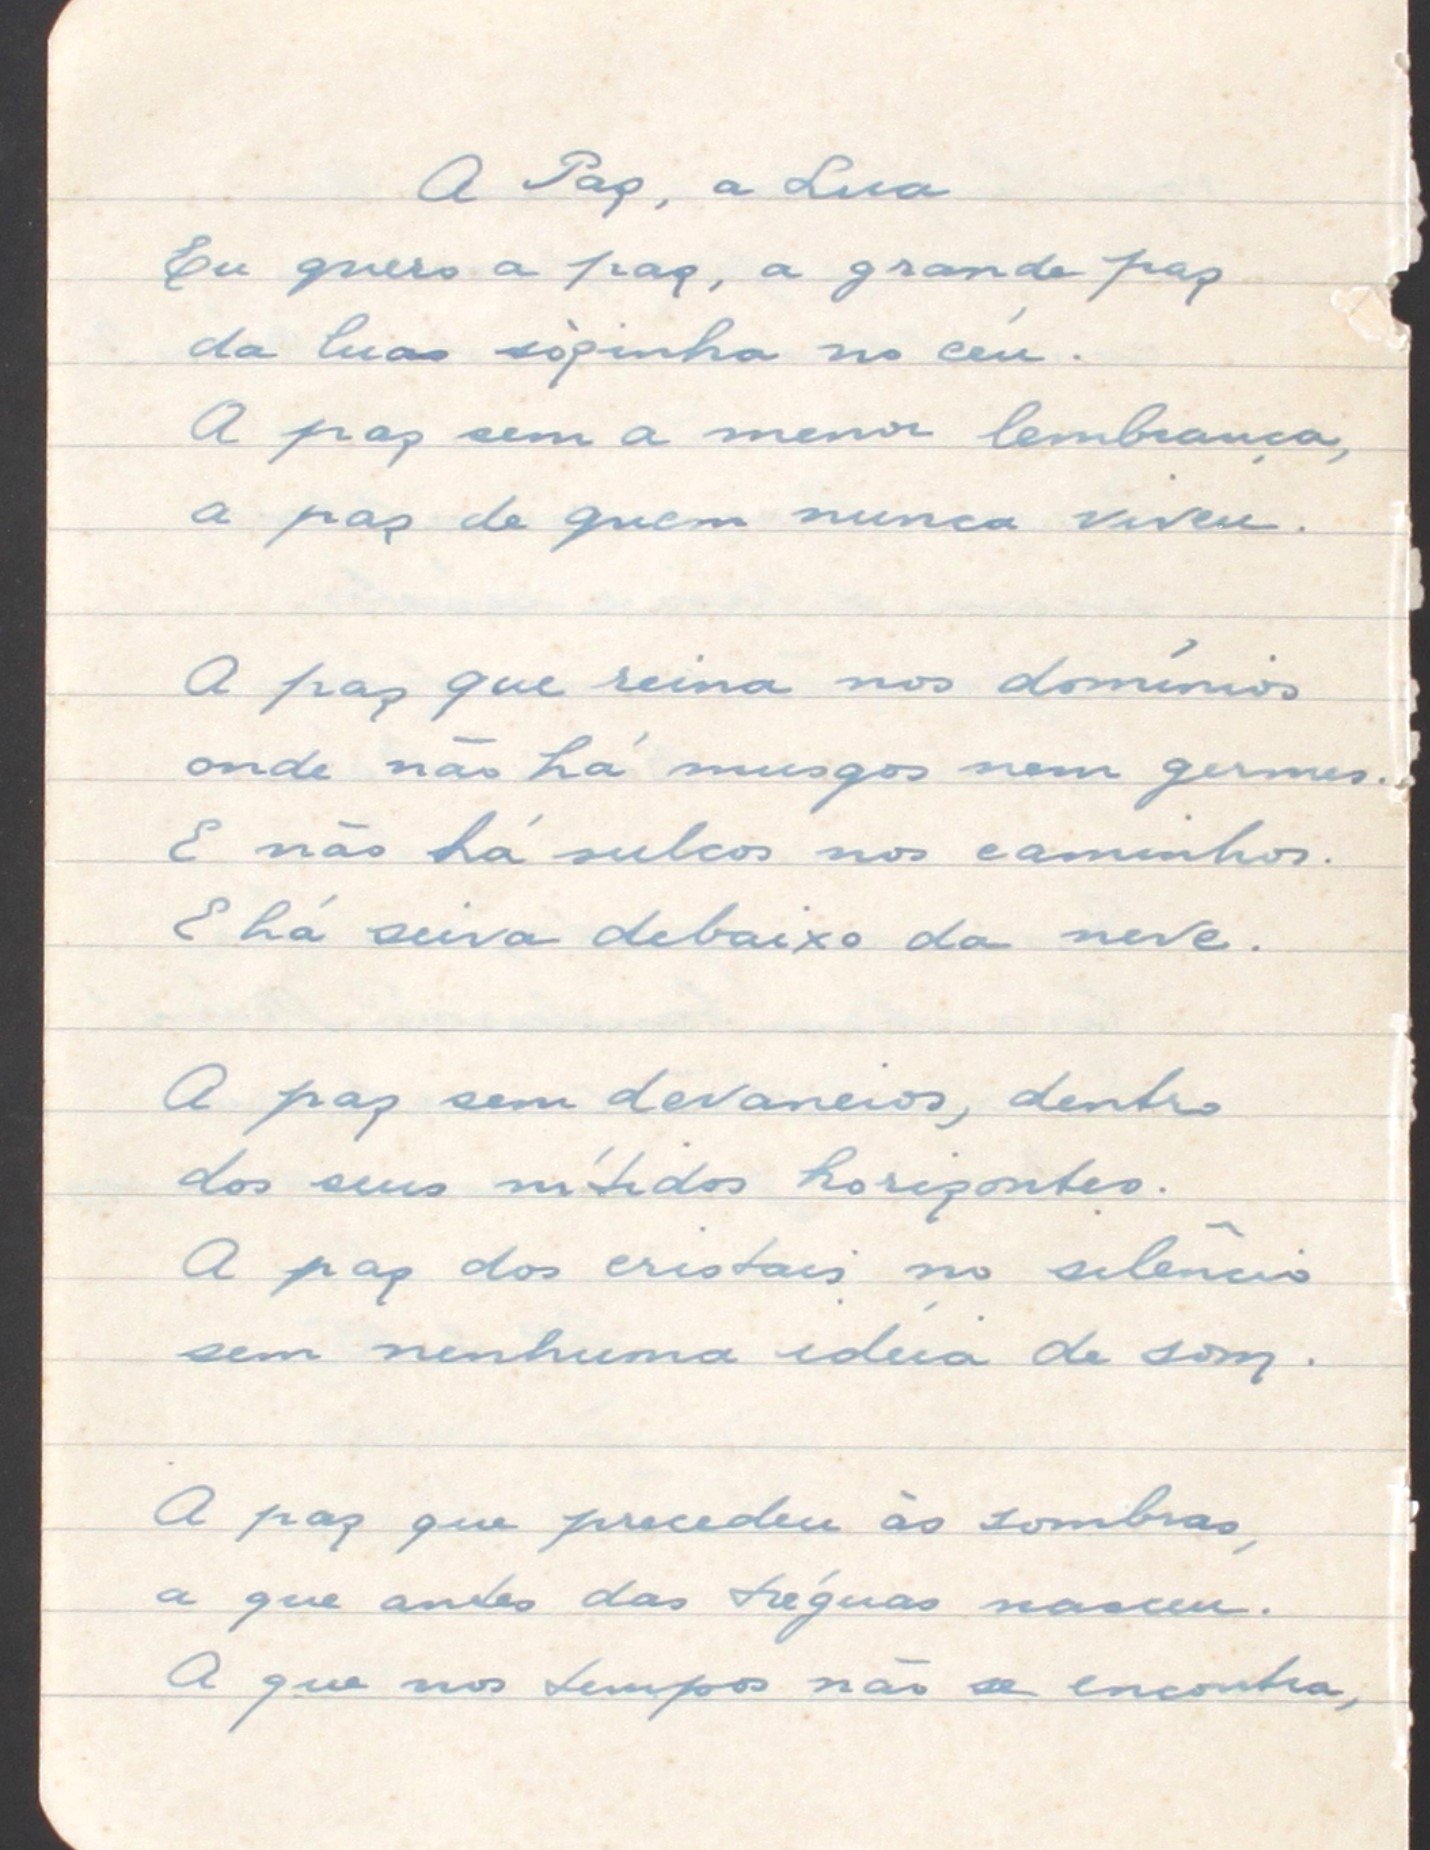 A Paz, a Lua
Eu quero a paz, a grande paz
da lua sòzinha no céu.
A paz sem a menor lembrança,
a paz de quem nunca viveu.
A paz que reina nos domínios
onde não há musgos nem germes.
E não há sulcos nos caminhos.
E há seiva debaixo da neve.
A paz sem devaneios, dentro
dos seus nítidos horizontes.
A paz dos cristais no silêncio
sem nenhuma idéia de som.
A paz que precedeu às sombras,
a que antes das tréguas nasceu.
A que nos tempos não se encontra,